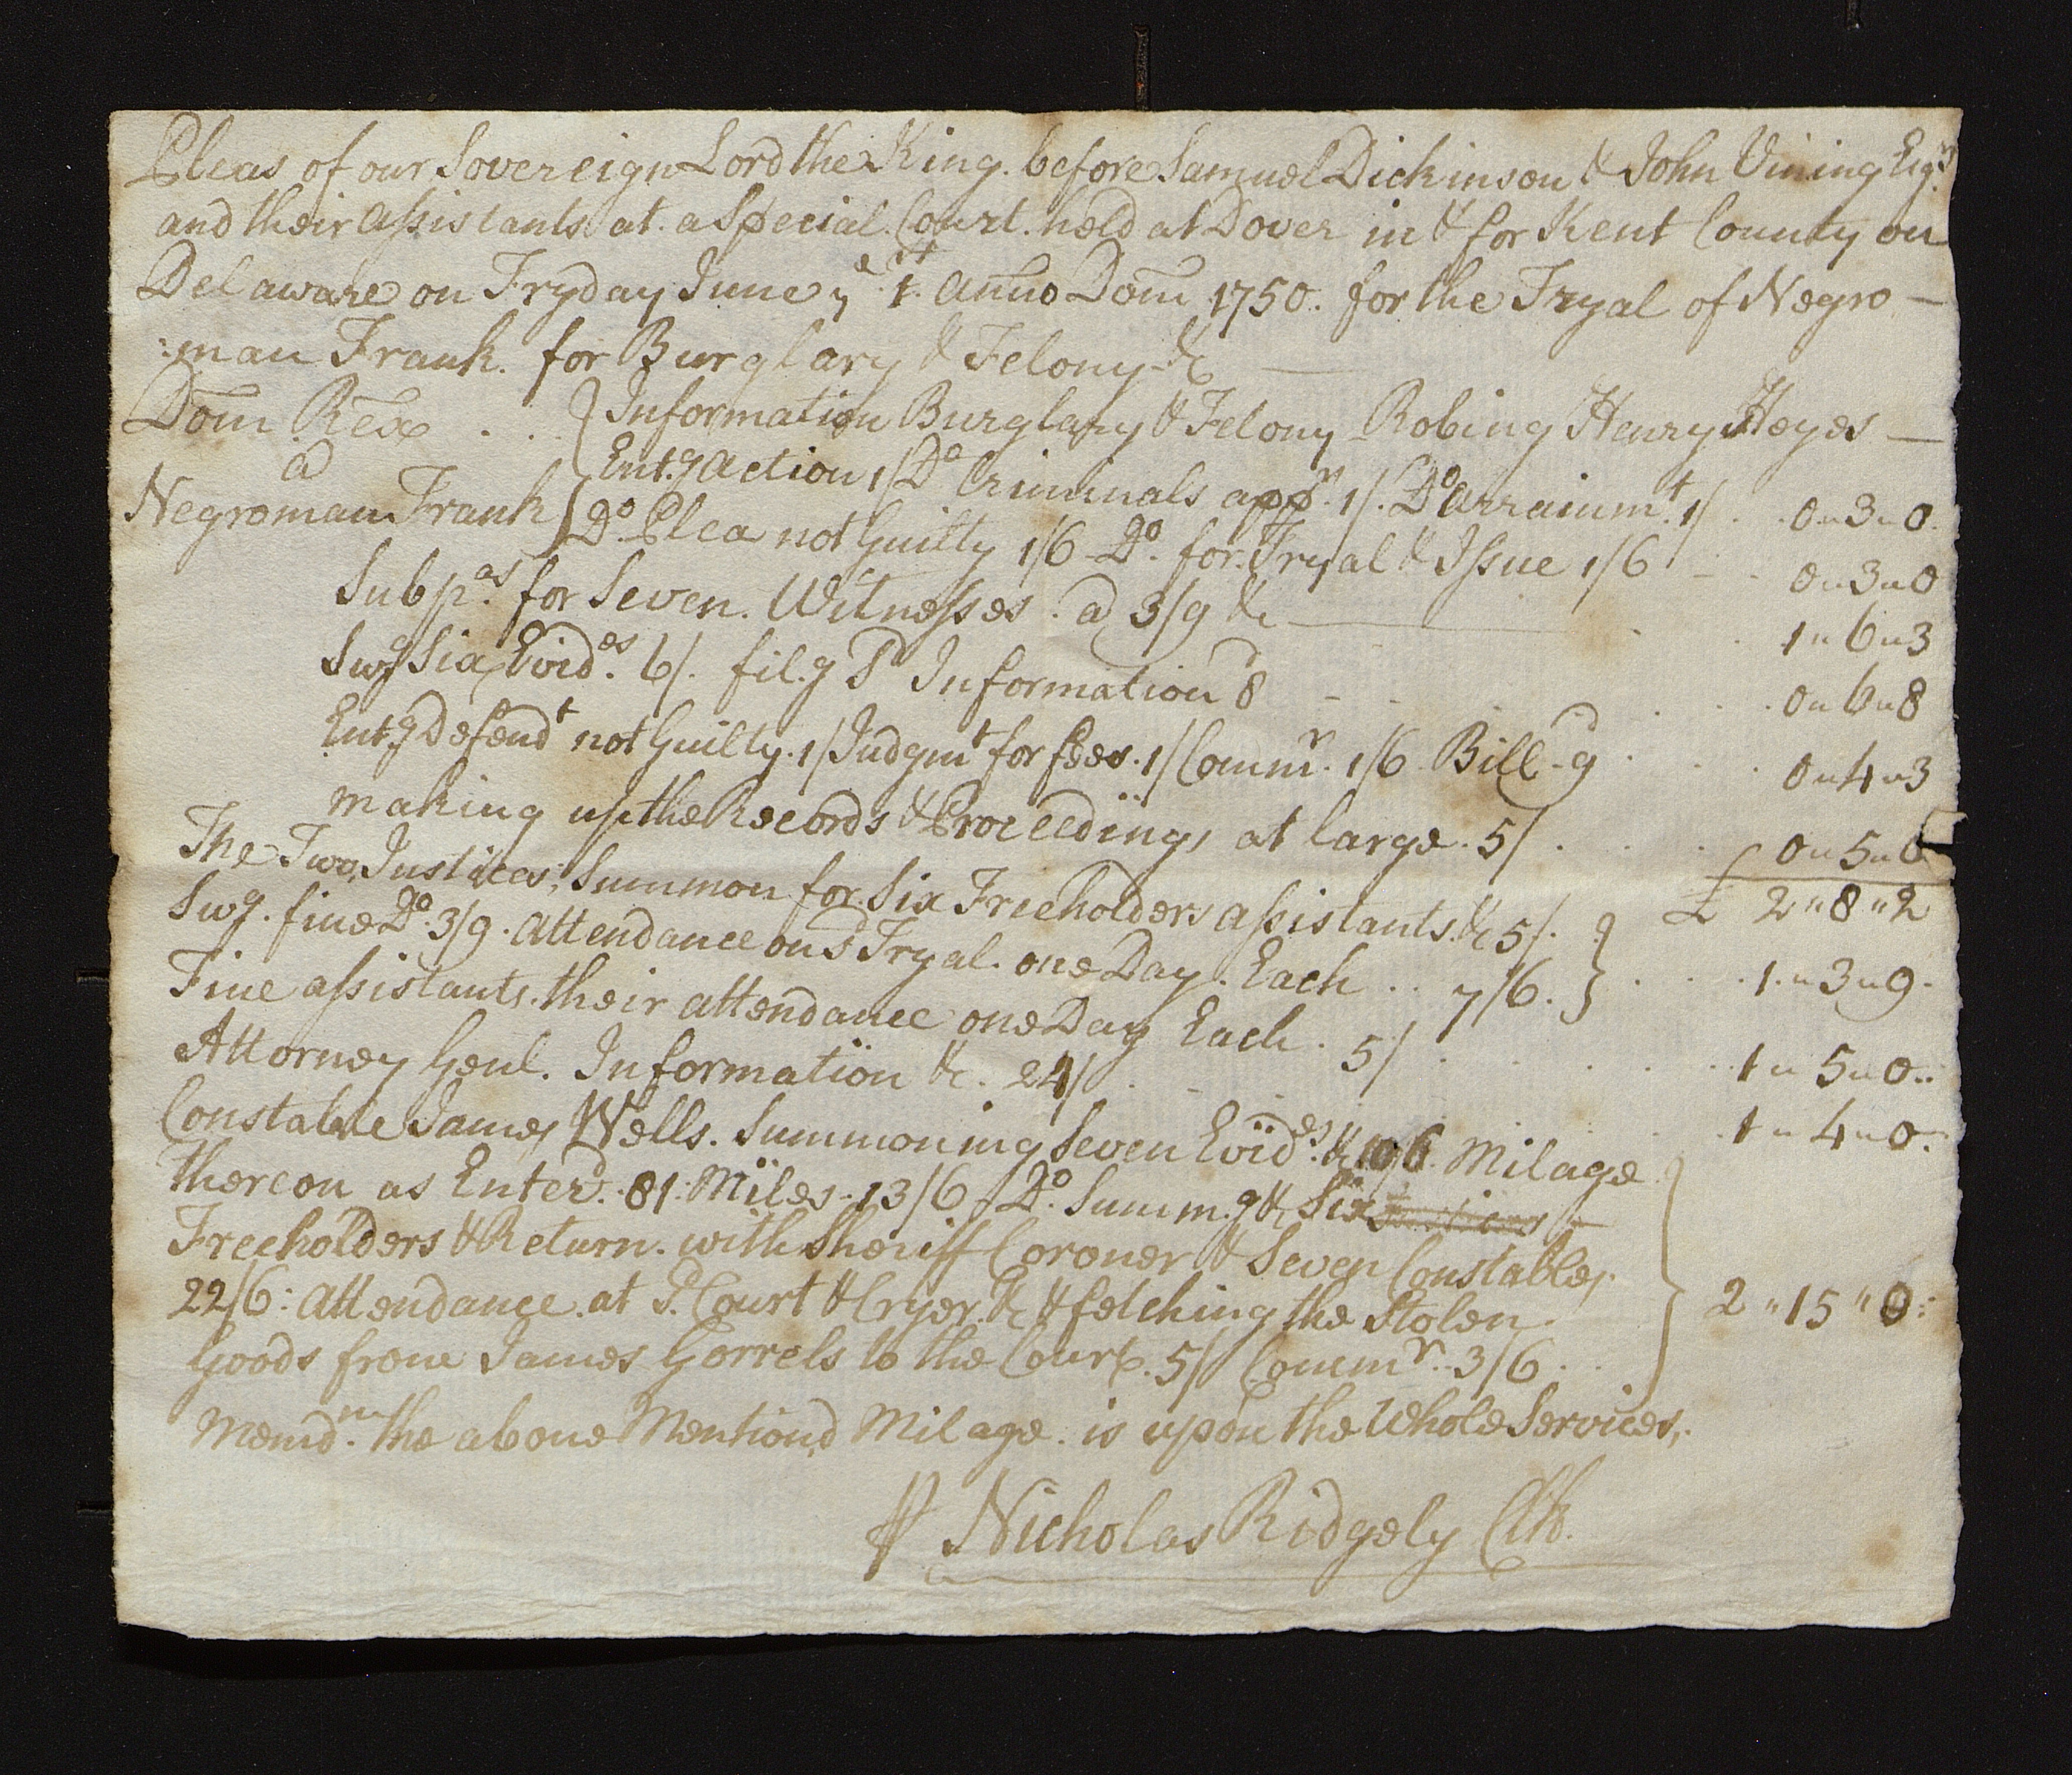 Pleas of our Sovereign Lord the King. before Samuel Dickinson & John Vining Esqrs
and their assistants at a Special Court. held at Dover in & for Kent County on
Delaware on Fryday June ye 1st anno Dom 1750. for the Tryal of Negro -
:man Frank. for Burglary & Felony &c
Dom Rex . . . Information Burglary & Felony Robing Henry Heyes
a
Negroman Frank Ent.g action 1/ Do Criminals appr. 1/. Do arrainmt. 1/ . . 0 " 3 " 0.
Do. Plea not Guilty 1/6 Do. for Tryal & Issue 1/6 - - 0 " 3 " 0
Subpas. for Seven. Witnesses . a 3/9 &c . . 1 " 6 " 3
Swg Six Evides. 6/. fil.g Sd Information 8d - . . . 0 " 6 " 8
Ent.g Defendt not Guilty. 1/ Judgmt for fees. 1/ Commr. 1/6 Bill 9d . . . 0 " 4 " 3
making up the Records & Proceedings at large. 5/ . . . 0 " 5 " 0
£ 2 " 8 " 2
The Two Justices, Summon for Six Freeholders assistants. &c 5/.
Swg. five Do. 3/9. attendance on sd Tryal. one Day. Each . . 7/6. . . . 1 " 3 " 9.
Five assistants. their attendance one Day Each . 5/ . . . 1 " 5 " 0..
Attorney Genl. Information &c. 24/ . . . 1 " 4 " 0.
Constable James Wells. Summoning Seven Evides. &c 10/6. Milage
thereon as Enterd. 81. Miles. 13/6 Do. Summ.g &c Six
Freeholders & Return. with Sheriff Coroner & Seven Constables.
22/6: attendance. at Sd. Court & Cryer. &c & fetching the Stolen
Goods from James Gorrels to the Court. 5/ Commr. 3/6 . . 2 " 15 " 0:
Memdm. the above Mentiond Milage. is upon the Whole Services,.
P Nicholas Ridgely Clk.